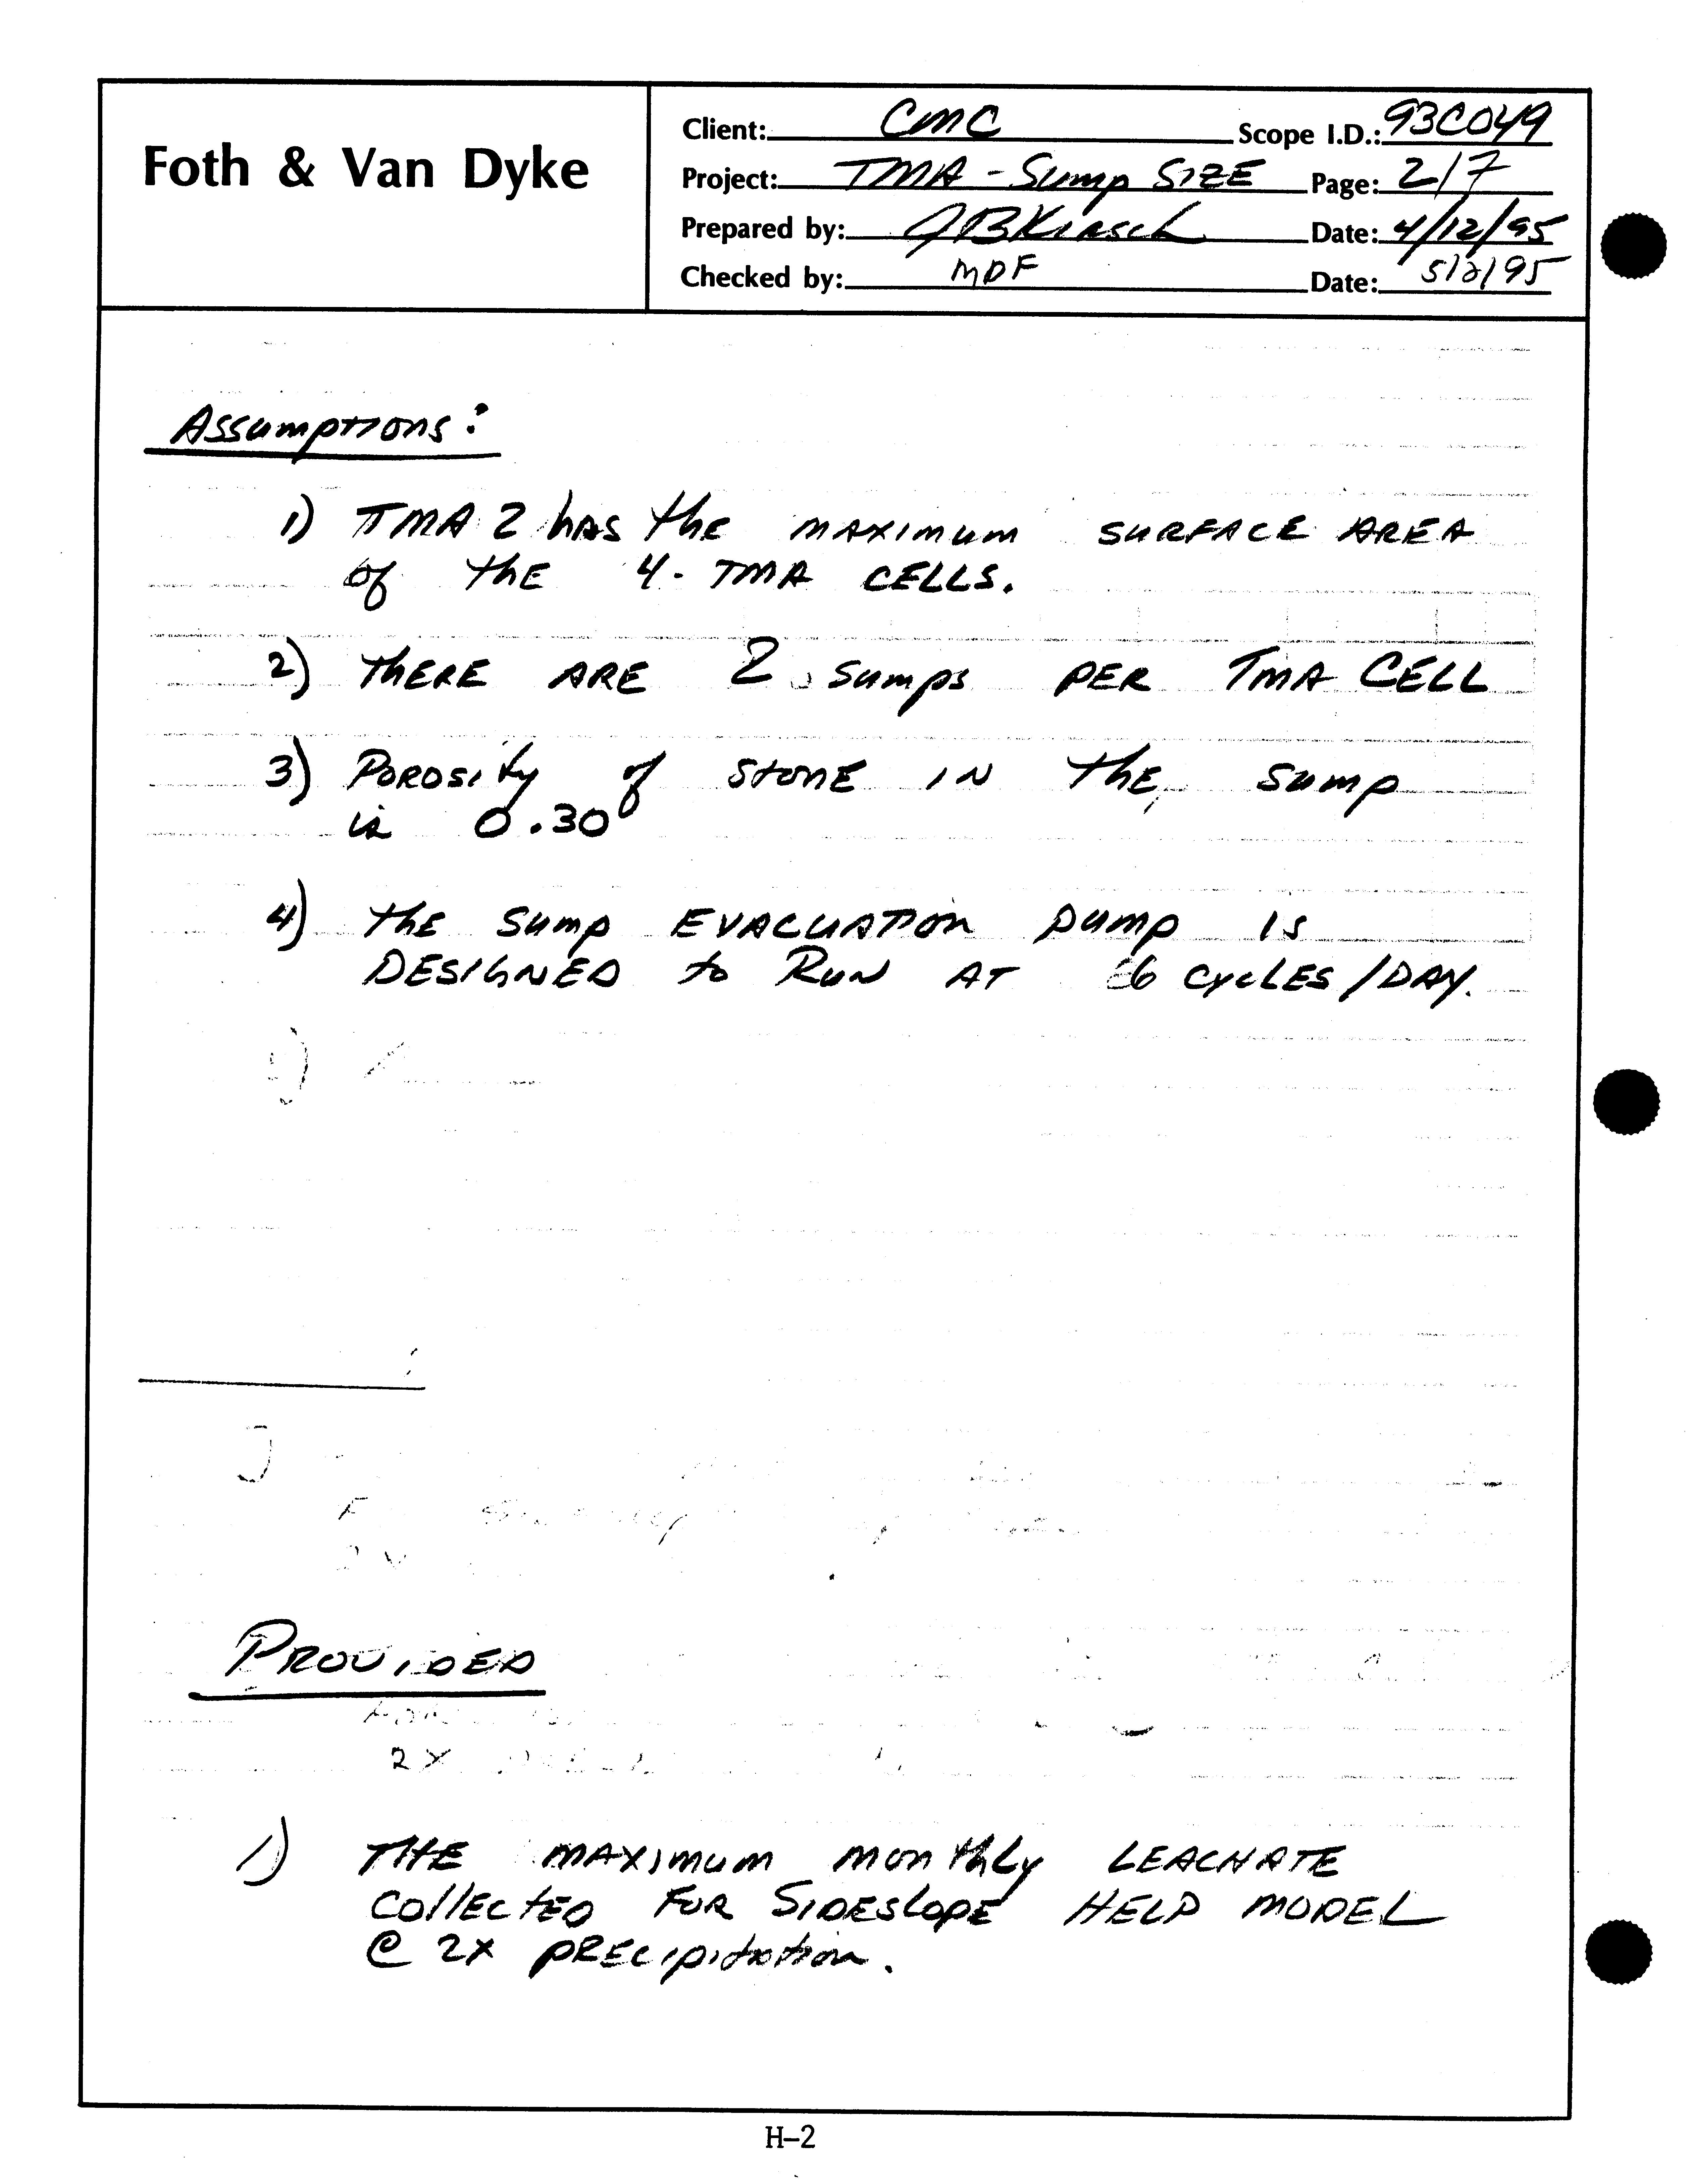 Foth & Van Dyke
Client: CMC Scope I.D.: 93C049
Project: TMA - Sump SIZE Page: 2/7
Prepared by: JBKirsch Date: 4/12/95
Checked by: MDF Date: 5/2/95
Assumptions:
1) TMA 2 hAS the MAXIMUM SURFACE AREA
of the 4- TMA CELLS.
2) thERE ARE 2 Sumps PER TMA CELL
3) Porosity of StonE IN the Sump
is 0.30
4) the Sump EVACUATION Pump IS
DESIGNED to RUN AT 6 CYCLES/DAY.
PROVIDED
2X
1) THE MAXIMUM monthly LEACHATE
COllECTED FOR SIDESlOPE HELP MODEL
@ 2X PRECIPITATION.
H-2